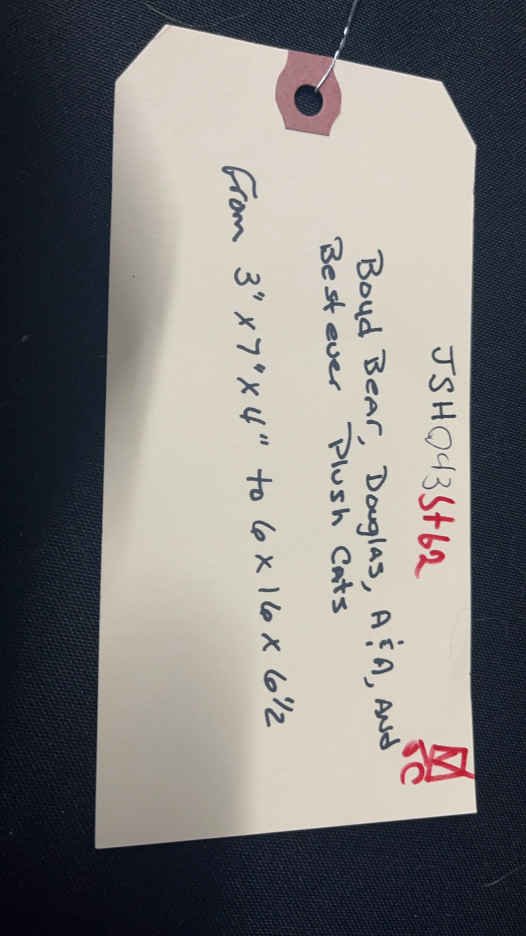 JSH043St62
Boyd Bear, Douglas, A&A, And
Best ever Plush Cats
From 3" x 7" x 4" to 6 x 16 x 6 1/2
JC